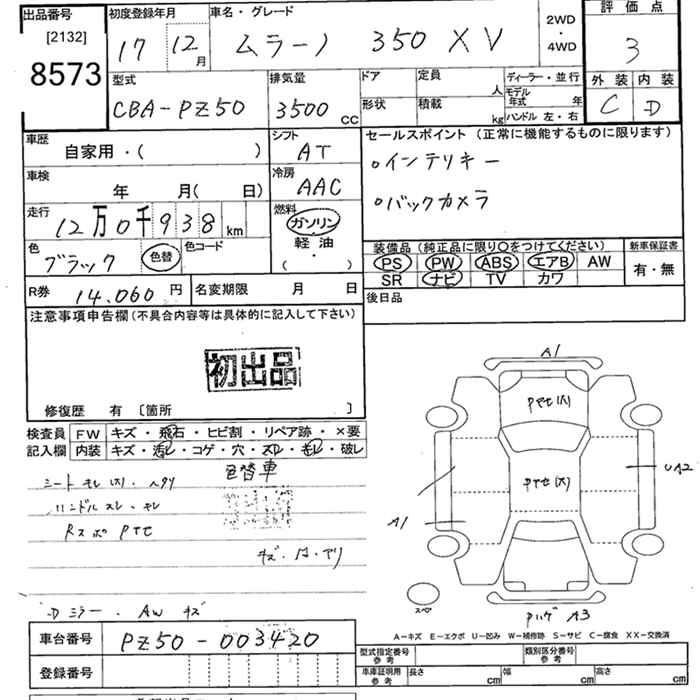 出品番号
[2132]
8573
初度登録年月
17 12月
車名・グレード
ムラーノ 350 XV
2WD
・
4WD
評価点
3
外装 内装
C D
型式
CBA-PZ50
排気量
3500 CC
ドア 定員 人
形状 積載 kg
ディーラー・並行
モデル年式 年
ハンドル 左・右
車歴
自家用・( )
シフト
AT
車検
年 月( 日)
冷房
AAC
走行
12万0千938 km
燃料
ガソリン
軽油
( )
色
ブラック
色替
色コード
R券 14,060 円
名変期限 月 日
セールスポイント (正常に機能するものに限ります)
○インテリキー
○バックカメラ
装備品 (純正品に限り○をつけてください)
PS PW ABS エアB AW
SR ナビ TV カワ
新車保証書
有・無
後日品
注意事項申告欄 (不具合内容等は具体的に記入して下さい)
初出品
修復歴 有 〔箇所 〕
検査員記入欄
FW キズ・飛石・ヒビ割・リペア跡・×要
内装 キズ・汚レ・コゲ・穴・スレ・キレ・破レ
色替車
シート キレ(大)・ヘタリ
ハンドル スレ・キレ
Rスポ Pてセ
キズ・凹・サリ
ミラー・AW キズ
A1
Pてセ(大)
Pてセ(大)
UA2
A1
スペア
Pハゲ A3
A−キズ E−エクボ U−凹み W−補修跡 S−サビ C−腐食 XX−交換済
車台番号 PZ50-003420
登録番号
型式指定番号 参考
類別区分番号 参考
車庫証明用 参考
長さ cm 幅 cm 高さ cm